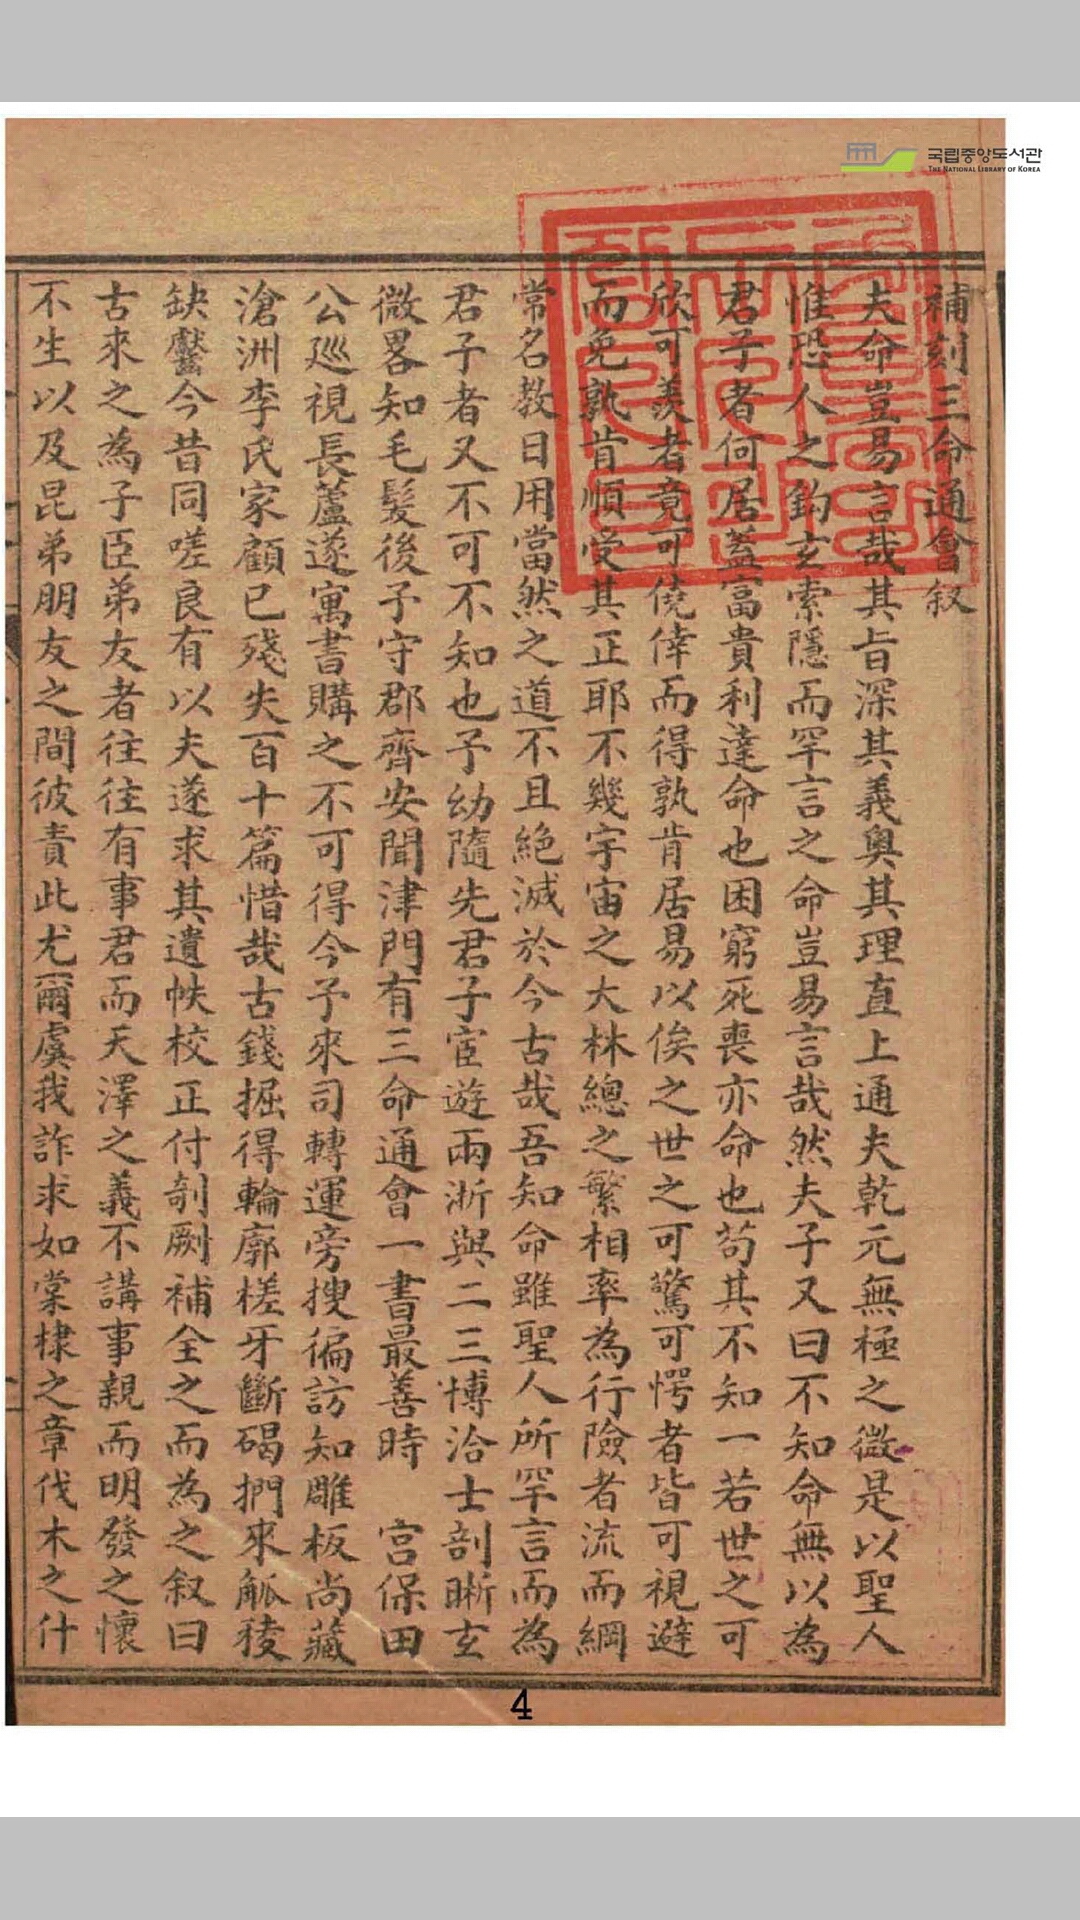 국립중앙도서관
THE NATIONAL LIBRARY OF KOREA
補刻三命通會叙
夫命豈易言哉其旨深其義奧其理直上通夫乾元無極之微是以聖人
惟恐人之鈎玄索隱而罕言之命豈易言哉然夫子又曰不知命無以為
君子者何居蓋富貴利達命也困窮死喪亦命也苟其不知一若世之可
欣可羨者竟可僥倖而得孰肯居易以俟之世之可驚可愕者皆可視避
而免孰肯順受其正耶不幾宇宙之大林總之繁相率為行險者流而綱
常名教日用當然之道不且絕滅於今古哉吾知命雖聖人所罕言而為
君子者又不可不知也予幼隨先君子宦遊兩浙與二三博洽士剖晣玄
微畧知毛髮後予守郡齊安聞津門有三命通會一書最善時 宮保田
公巡視長蘆遂寓書購之不可得今予來司轉運旁搜徧訪知雕板尚藏
滄洲李氏家顧已殘失百十篇惜哉古錢掘得輪廓槎牙斷碣捫來觚稜
缺齾今昔同嗟良有以夫遂求其遺帙校正付剞劂補全之而為之叙曰
古來之為子臣弟友者往往有事君而天澤之義不講事親而明發之懷
不生以及昆弟朋友之間彼責此尤爾虞我詐求如棠棣之章伐木之什
4